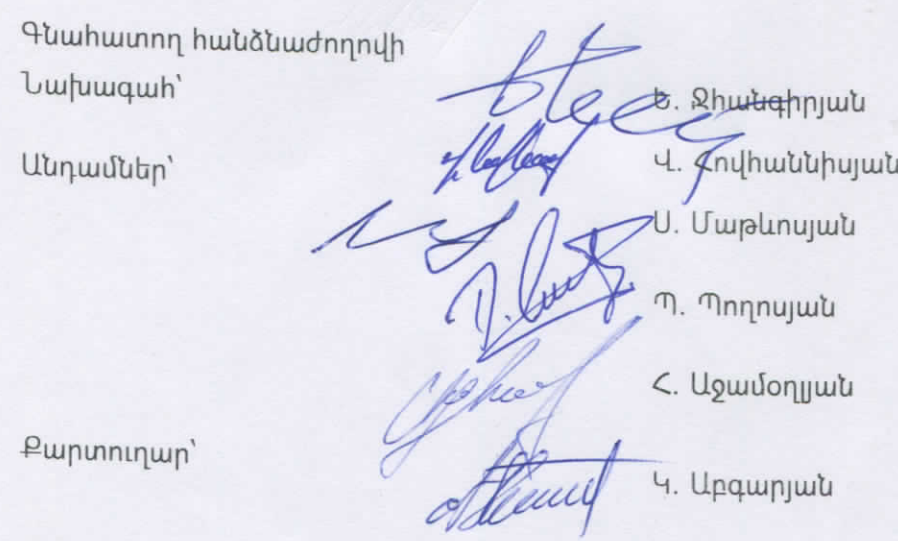 Գնահատող հանձնաժողովի
Նախագահ՝
Ե. Ջհանգիրյան
Անդամներ՝
Վ. Հովհաննիսյան
Ս. Մաթևոսյան
Պ. Պողոսյան
Հ. Աջամօղլյան
Քարտուղար՝
Կ. Աբգարյան